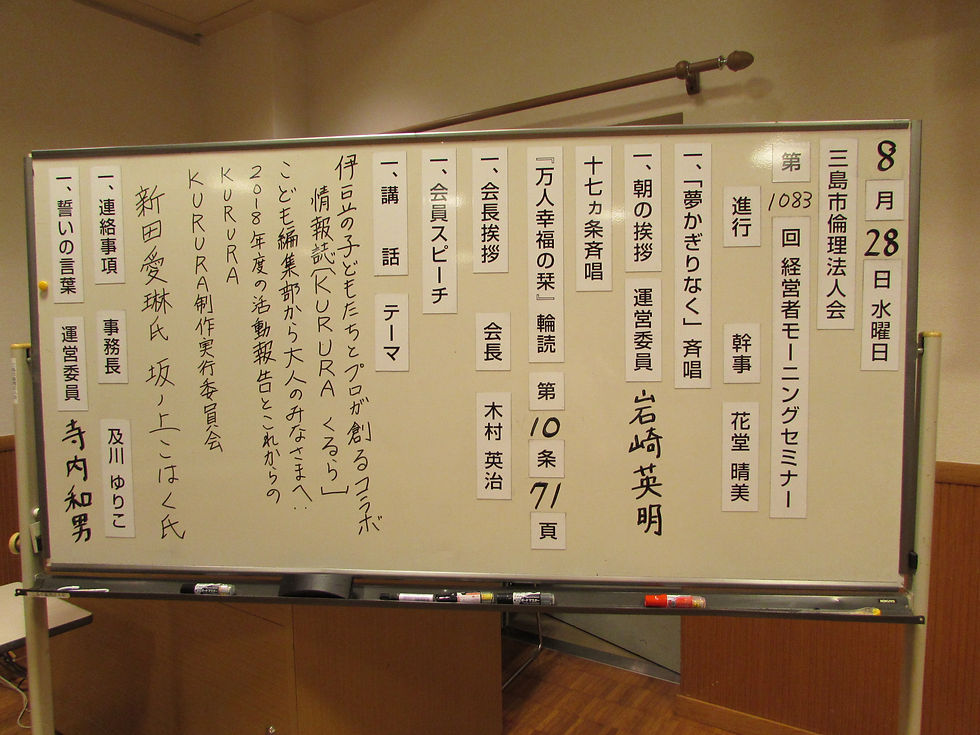 8月28日 水曜日
三島市倫理法人会
第1083回 経営者モーニングセミナー
進行 幹事 花堂 晴美
一、「夢かぎりなく」斉唱
一、朝の挨拶 運営委員 岩崎英明
十七ヵ条斉唱
『万人幸福の栞』輪読 第10条 71頁
一、会長挨拶 会長 木村 英治
一、会員スピーチ
一、講 話 テーマ
伊豆の子どもたちとプロが創るコラボ
情報誌「KURURA くるら」
こども編集部から大人のみなさまへ‥
2018年度の活動報告とこれからの
KURURA
KURURA制作実行委員会
新田愛琳氏 坂ノ上こはく氏
一、連絡事項 事務長 及川 ゆりこ
一、誓いの言葉 運営委員 寺内和男